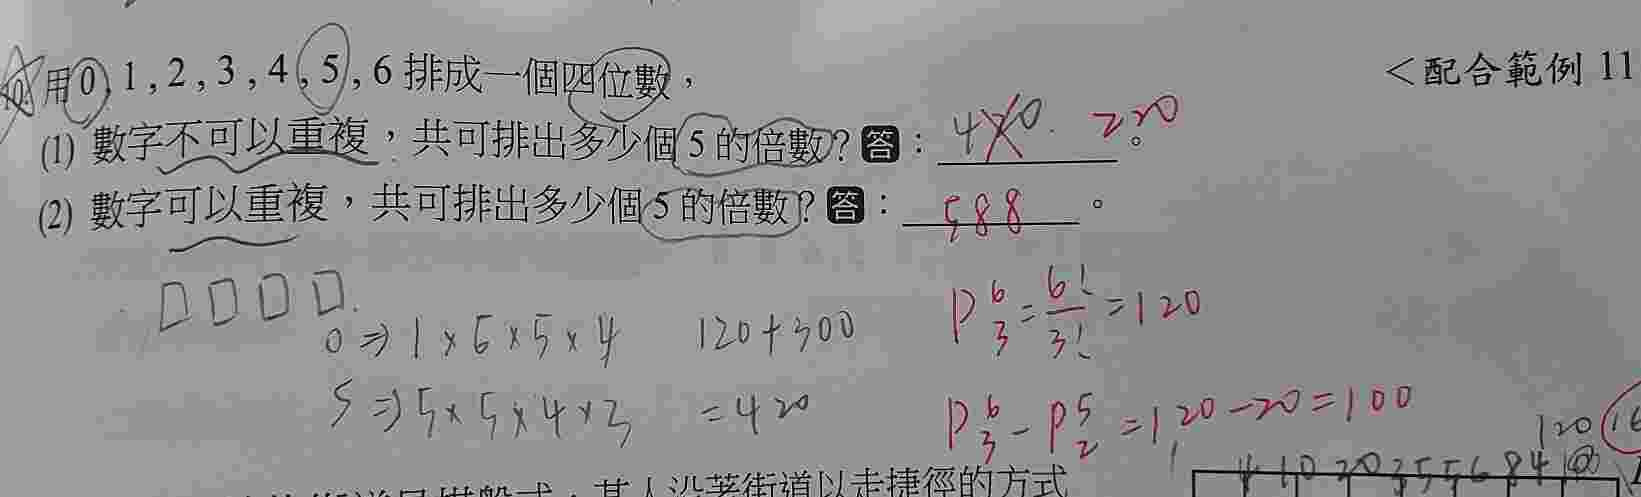 用 0 , 1 , 2 , 3 , 4 , 5 , 6 排成一個四位數，
<配合範例 11
(1) 數字不可以重複，共可排出多少個 5 的倍數？答： 4 0 . 220 。
(2) 數字可以重複，共可排出多少個 5 的倍數？答： 588 。
0 ⇒ 1 × 6 × 5 × 4 120 + 300
P 6 3 = 6! / 3! = 120
5 ⇒ 5 × 5 × 4 × 3 = 420
P 6 3 - P 5 2 = 120 - 20 = 100
120
某人沿著街道以走捷徑的方式